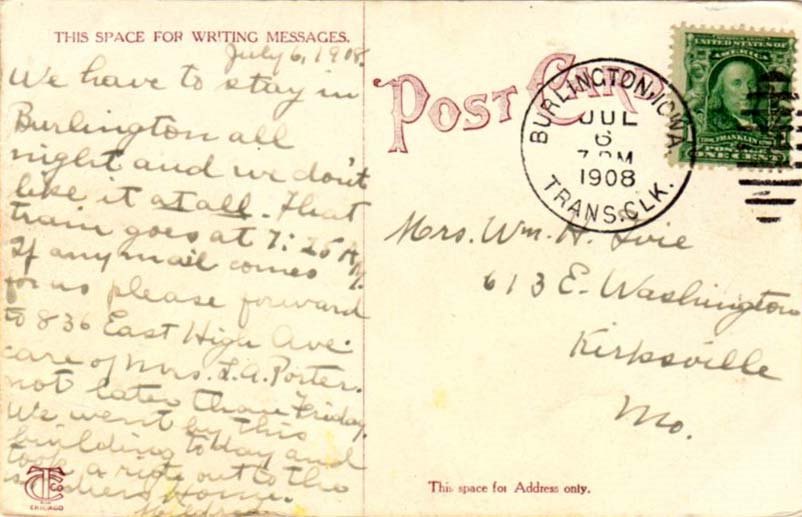 THIS SPACE FOR WRITING MESSAGES.
July 6, 1908.
We have to stay in
Burlington all
night and we don't
like it at all. That
train goes at 7:25 A.M.
If any mail comes
for us please forward
to 836 East High Ave.
care of Mrs. L.A. Porter.
not later than Friday.
We went by this
building today and
took a ride out to the
soldiers Home.
POST CARD
BURLINGTON, IOWA
JUL
6
7 PM
1908
TRANS. CLK.
UNITED STATES OF
AMERICA
FRANKLIN
POSTAGE
ONE CENT
Mrs. Wm. H. Ivie
613 E. Washington
Kirksville
Mo.
This space for Address only.
CHICAGO